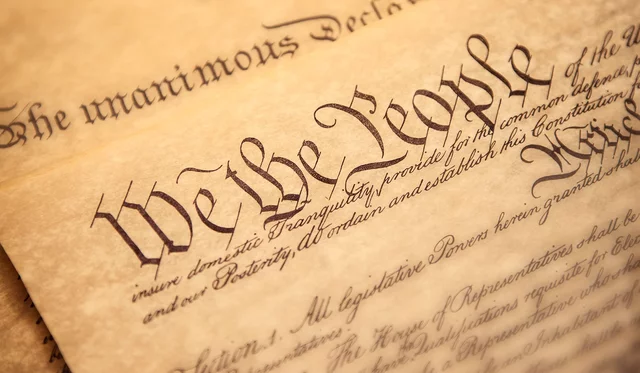 The unanimous Decla
We the People of the U
insure domestic Tranquility, provide for the common defence,
and our Posterity, do ordain and establish this Constitution
Artic
Section 1. All legislative Powers herein granted shall
Representatives.
The House of Representatives shall be
have Qualifications requisite for Elec
be a Representative who shall
Inhabitant of